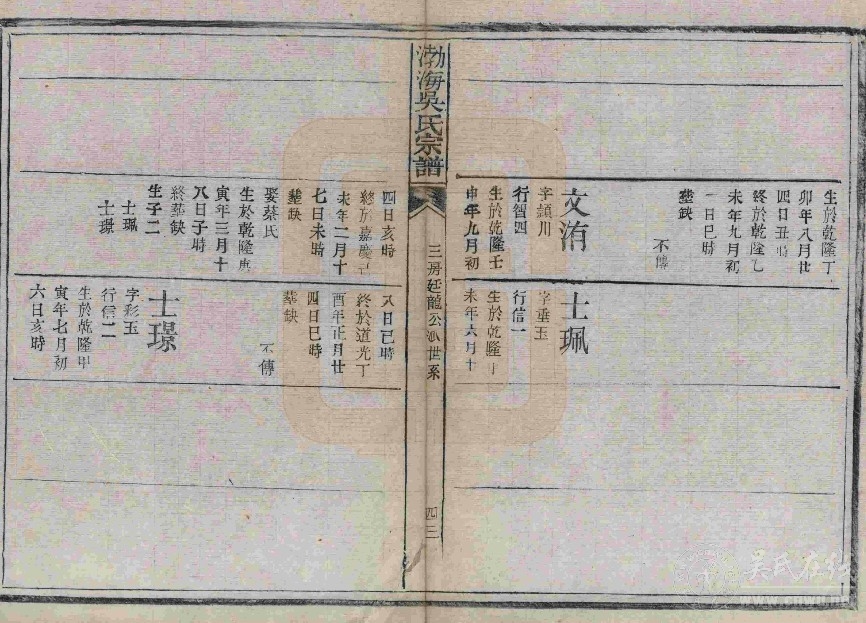 渤海吳氏宗譜
三房廷龍公派世系
四三
生於乾隆丁
卯年八月廿
四日丑時
終於乾隆乙
未年九月初
一日巳時
墓缺
不傳
文洧
字潁川
行智四
生於乾隆壬
申年九月初
四日亥時
終於嘉慶己
未年二月十
七日未時
墓缺
娶蔡氏
生於乾隆庚
寅年三月十
八日子時
終墓缺
生子二
士珮
士璟
士珮
字垂玉
行信一
生於乾隆丁
未年六月十
八日巳時
終於道光丁
酉年正月廿
四日巳時
墓缺
不傳
士璟
字彩玉
行信二
生於乾隆甲
寅年七月初
六日亥時
吴氏在线